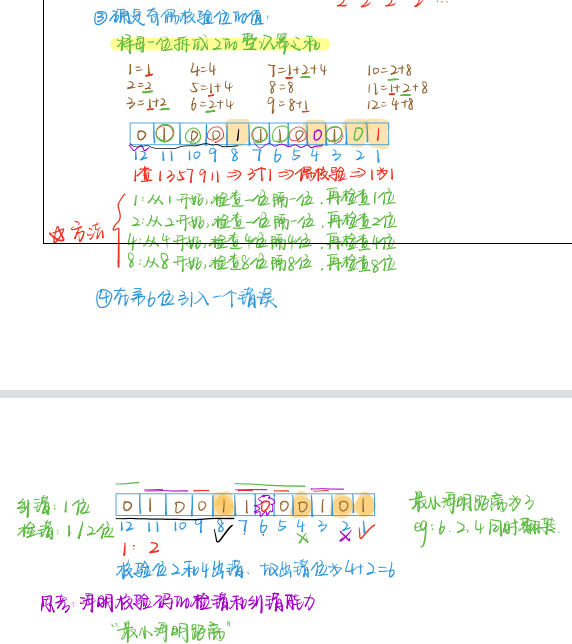 2 2 2 2 ...
③确定奇偶校验位的值:
将每一位拆成2的整次幂之和
1=1 4=4 7=1+2+4 10=2+8
2=2 5=1+4 8=8 11=1+2+8
3=1+2 6=2+4 9=8+1 12=4+8
0 1 0 0 1 1 1 0 0 1 0 1
12 11 10 9 8 7 6 5 4 3 2 1
1查1 3 5 7 9 11 ⇒ 3个1 ⇒ 偶校验 ⇒ 1为1
☆方法
1:从1开始,检查一位隔一位,再检查1位
2:从2开始,检查二位隔二位,再检查2位
4:从4开始,检查4位隔4位,再检查4位
8:从8开始,检查8位隔8位,再检查8位
④在第6位引入一个错误
纠错:1位
检错:1/2位
0 1 0 0 1 1 0 0 0 1 0 1
12 11 10 9 8 7 6 5 4 3 2 1
1: 2
最小海明距离为3
eg:6.2.4同时
校验位2和4出错,故出错位为4+2=6
思考:海明校验码的检错和纠错能力
"最小海明距离"